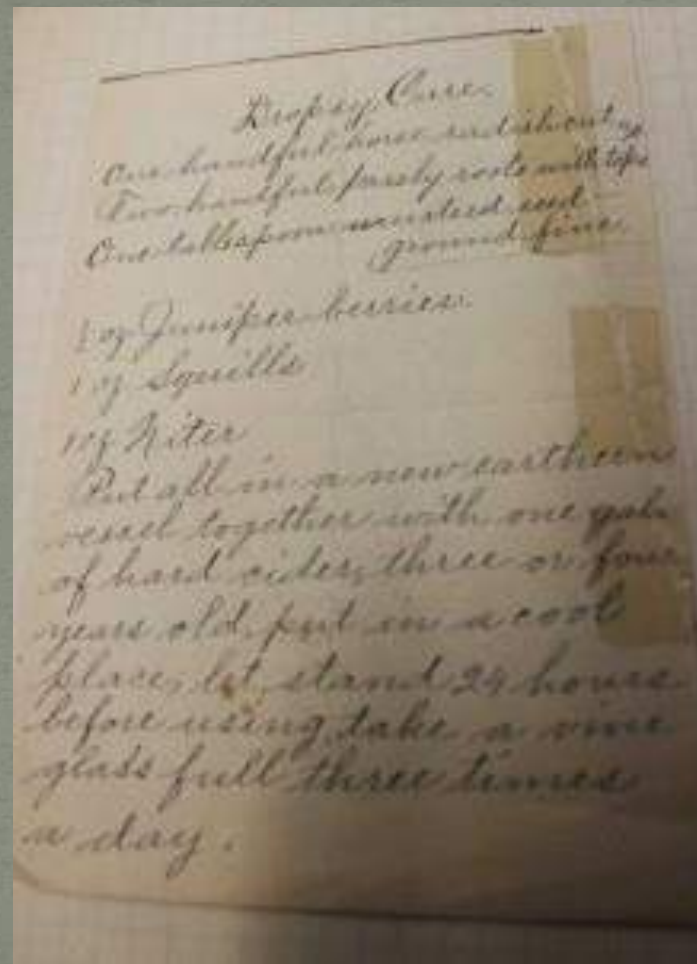 Dropsy Cure.
One handful horse radish cut up
Two handfuls parsly roots with tops
One tablespoon mustard seed
ground fine
1 oz Juniper berries.
1 oz Squills
1 oz Niter
Put all in a new earthern
vessel together with one gal.
of hard cider, three or four
years old, put in a cool
place, let stand 24 hours
before using, take a wine
glass full three times
a day.